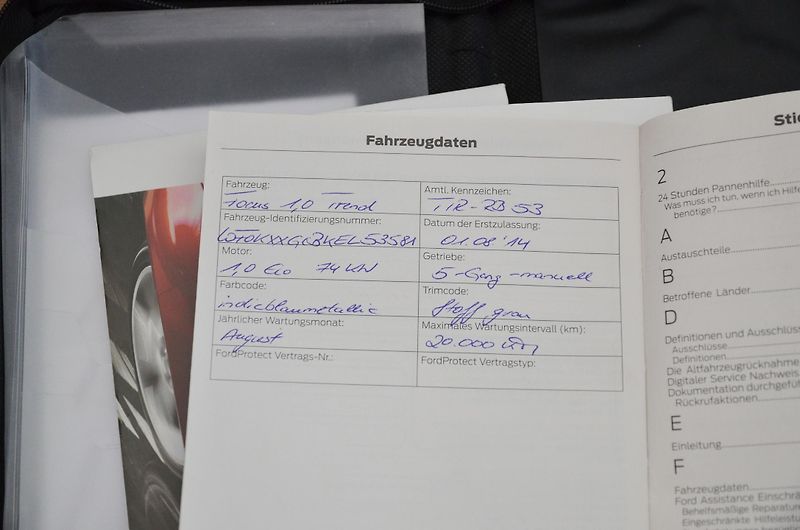 Fahrzeugdaten
Fahrzeug:
Focus 1,0 Trend
Amtl. Kennzeichen:
TIR-ZB 53
Fahrzeug-Identifizierungsnummer:
Datum der Erstzulassung:
01.08'14
Motor:
1,0 Eco 74 KW
Getriebe:
5-Gang-manuell
Farbcode:
indicblaumetallic
Trimcode:
Stoff grau
Jährlicher Wartungsmonat:
August
Maximales Wartungsintervall (km):
20.000 km
FordProtect Vertrags-Nr.:
FordProtect Vertragstyp:
Sti
2
24 Stunden Pannenhilfe
Was muss ich tun, wenn ich Hilfe
benötige?
A
Austauschteile
B
Betroffene Länder
D
Definitionen und Ausschlüss
Ausschlüsse
Definitionen
Die Altfahrzeugrücknahme
Digitaler Service Nachweis
Dokumentation durchgefüh
Rückrufaktionen
E
Einleitung
F
Fahrzeugdaten
Ford Assistance Einschrä
Behelfsmäßige Reparatur
Eingeschränkte Hilfeleist